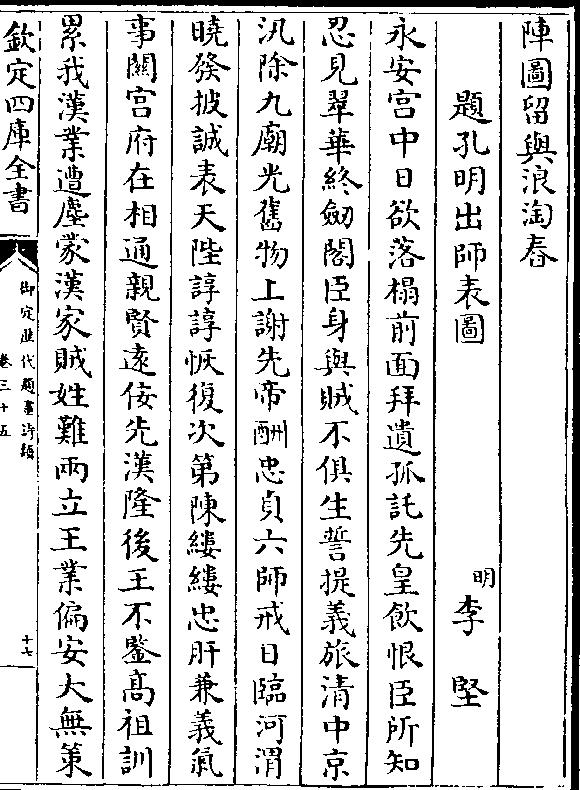 陣圖留與浪淘舂
題孔明出師表圖
明李堅
永安宫中日欲落榻前面拜遺孤託先皇飲恨臣所知
忍見翠華終劒閣臣身與賊不俱生誓提義旅清中京
汛除九廟光舊物上謝先帝酬忠貞六師戒日臨河渭
曉發披誠表天陛諄諄恢復次第陳縷縷忠肝兼義氣
事關宫府在相通親賢逺佞先漢隆後王不鑒髙祖訓
累我漢業遭塵蒙漢家賊姓難兩立王業偏安大無策
欽定四庫全書
御定歴代題畫詩類
卷三十五
十七